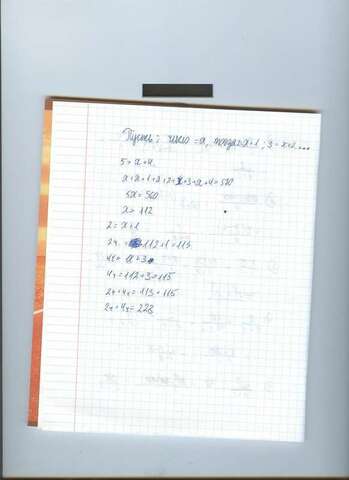 Пусть: число = x, тогда 2 = x+1; 3 = x+2...
5 = x+4.
x+x+1+x+2+x+3+x+4=570
5x=560
x=112
2=x+1
2ч. = 112+1=113
4ч = x+3
4ч=112+3=115
2ч+4ч=113+115
2ч+4ч=228